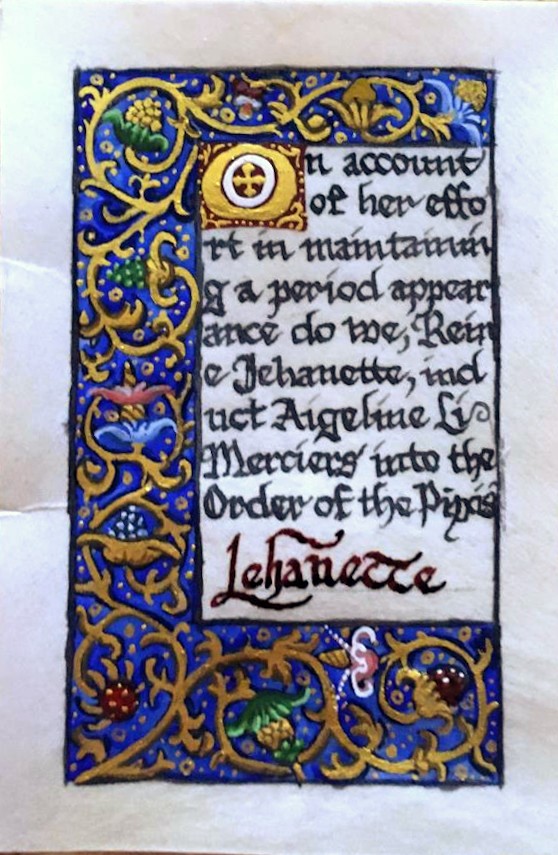 On account
of her effo
rt in maintainin
g a period appear
ance do we, Rein
e Jehanette, ind
uct Aigeline Li
Merciers into the
Order of the Pixis
Jehanette